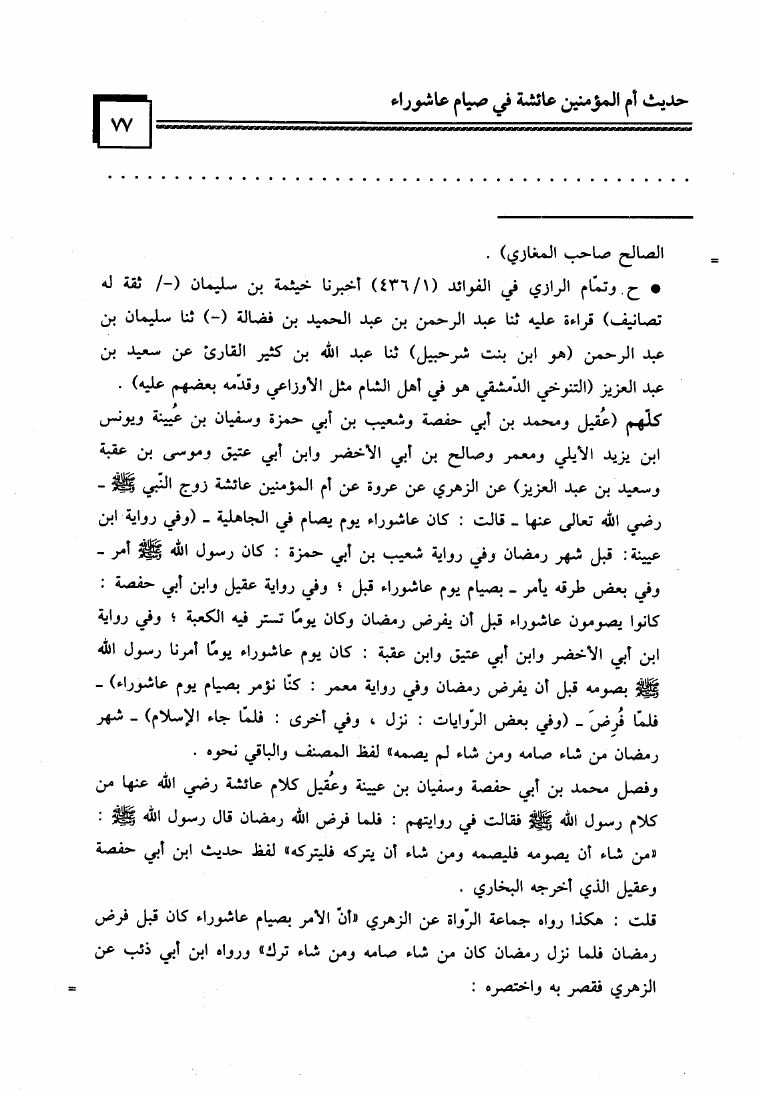 حديث أم المؤمنين عائشة في صيام عاشوراء
٧٧
. . . . . . . . . . . . . . . . . . . . . . . . . . . . . . . . . . . . . . . . . . .
= الصالح صاحب المغازي) .
● ح. وتمّام الرازي في الفوائد (٤٣٦/١) أخبرنا خيثمة بن سليمان (-/ ثقة له
تصانيف) قراءة عليه ثنا عبد الرحمن بن عبد الحميد بن فضالة (-) ثنا سليمان بن
عبد الرحمن (هو ابن بنت شرحبيل) ثنا عبد الله بن كثير القارئ عن سعيد بن
عبد العزيز (التنوخي الدّمشقي هو في أهل الشام مثل الأوزاعي وقدّمه بعضهم عليه) .
كلّهم (عُقيل ومحمد بن أبي حفصة وشعيب بن أبي حمزة وسفيان بن عُيينة ويونس
ابن يزيد الأيلي ومعمر وصالح بن أبي الأخضر وابن أبي عتيق وموسى بن عقبة
وسعيد بن عبد العزيز) عن الزهري عن عروة عن أم المؤمنين عائشة زوج النّبي ﷺ -
رضي الله تعالى عنها - قالت : كان عاشوراء يوم يصام في الجاهلية - (وفي رواية ابن
عيينة: قبل شهر رمضان وفي رواية شعيب بن أبي حمزة : كان رسول الله ﷺ أمر -
وفي بعض طرقه يأمر - بصيام يوم عاشوراء قبل ؛ وفي رواية عقيل وابن أبي حفصة :
كانوا يصومون عاشوراء قبل أن يفرض رمضان وكان يومًا تستر فيه الكعبة ؛ وفي رواية
ابن أبي الأخضر وابن أبي عتيق وابن عقبة : كان يوم عاشوراء يومًا أمرنا رسول الله
ﷺ بصومه قبل أن يفرض رمضان وفي رواية معمر : كنّا نؤمر بصيام يوم عاشوراء) -
فلمّا فُرِضَ - (وفي بعض الرّوايات : نزل ، وفي أخرى : فلمّا جاء الإسلام) - شهر
رمضان من شاء صامه ومن شاء لم يصمه» لفظ المصنف والباقي نحوه .
وفصل محمد بن أبي حفصة وسفيان بن عيينة وعُقيل كلام عائشة رضي الله عنها من
كلام رسول الله ﷺ فقالت في روايتهم : فلما فرض الله رمضان قال رسول الله ﷺ :
«من شاء أن يصومه فليصمه ومن شاء أن يتركه فليتركه» لفظ حديث ابن أبي حفصة
وعقيل الذي أخرجه البخاري .
قلت : هكذا رواه جماعة الرّواة عن الزهري «أنّ الأمر بصيام عاشوراء كان قبل فرض
رمضان فلما نزل رمضان كان من شاء صامه ومن شاء ترك» ورواه ابن أبي ذئب عن
الزهري فقصر به واختصره : =